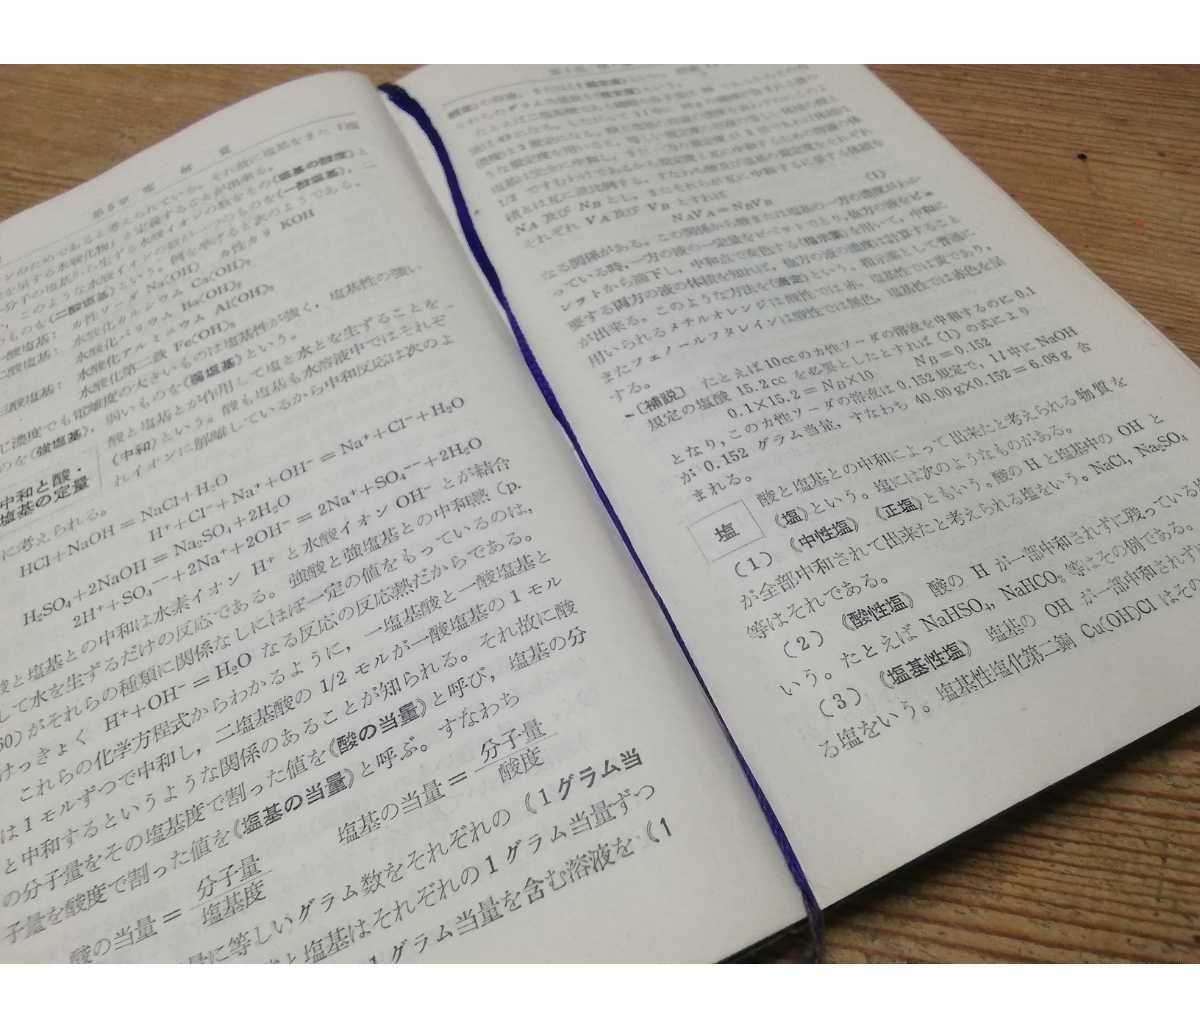 第5章 電解質
とのためであると考えられている。それ故に塩基をまた《塩
を有する水酸化物》と定義することが出来る。
分子の塩基から生ずる水酸イオンの数をその《塩基の酸度》と
このような水酸イオンの数が一つのものを《一酸塩基》、二
のものを《二酸塩基》という。例を挙げると次のようである。
一酸塩基: カ性ソーダ NaOH カ性カリ KOH
二酸塩基: 水酸化カルシウム Ca(OH)₂
水酸化バリウム Ba(OH)₂
三酸塩基: 水酸化アルミニウム Al(OH)₃
水酸化第二鉄 Fe(OH)₃
じ濃度でも電離度の大きいものは塩基性が強く、塩基性の強い
のを《強塩基》、弱いものを《弱塩基》という。
中和と酸・塩基の定量
酸と塩基とが作用して塩と水とを生ずることを
《中和》という。酸も塩基も水溶液中ではそれぞ
れイオンに解離しているから中和反応は次のよ
に考えられる。
HCl+NaOH = NaCl+H₂O
H⁺+Cl⁻+Na⁺+OH⁻ = Na⁺+Cl⁻+H₂O
H₂SO₄+2NaOH = Na₂SO₄+2H₂O
2H⁺+SO₄⁻⁻+2Na⁺+2OH⁻ = 2Na⁺+SO₄⁻⁻+2H₂O
酸と塩基との中和は水素イオン H⁺ と水酸イオン OH⁻ とが結合
して水を生ずるだけの反応である。強酸と強塩基との中和熱 (p.
60) がそれらの種類に関係なしにほぼ一定の値をもっているのは、
けっきょく H⁺+OH⁻ = H₂O なる反応の反応熱だからである。
これらの化学方程式からわかるように、一塩基酸と一酸塩基と
は1モルずつで中和し、二塩基酸の 1/2 モルが一酸塩基の 1 モル
と中和するというような関係のあることが知られる。それ故に酸
の分子量をその塩基度で割った値を《酸の当量》と呼び、塩基の分
子量を酸度で割った値を《塩基の当量》と呼ぶ。すなわち
酸の当量 = 分子量/塩基度 塩基の当量 = 分子量/酸度
量に等しいグラム数をそれぞれの《1グラム当
と塩基はそれぞれの1グラム当量ずつ
1グラム当量を含む溶液を《1
NA 及び NB とし、またそれが互に中和するに要する体積を
それぞれ VA 及び VB とすれば
NAVA = NBVB (1)
なる関係がある。この関係から酸または塩基の一方の濃度がわか
っている時、一方の液の一定量をピペットでとり、他方の液をビュ
レットから滴下し、中和点で変色する《指示薬》を用いて、中和に
要する両方の液の体積を知れば、他方の液の濃度は計算すること
が出来る。このような方法を《滴定》という。指示薬として普通に
用いられるメチルオレンジは酸性では赤、塩基性では黄であり、
またフェノールフタレインは酸性では無色、塩基性では赤色を呈
する。
〔補説〕 たとえば 10cc のカ性ソーダの溶液を中和するのに 0.1
規定の塩酸 15.2cc を必要としたとすれば (1) の式により
0.1×15.2 = NB×10 NB = 0.152
となり、このカ性ソーダの溶液は 0.152 規定で、1l 中に NaOH
が 0.152 グラム当量、すなわち 40.00g×0.152 = 6.08g 含
まれる。
塩
酸と塩基との中和によって出来たと考えられる物質を
《塩》という。塩には次のようなものがある。
(1) 《中性塩》《正塩》ともいう。酸の H と塩基中の OH と
が全部中和されて出来たと考えられる塩をいう。NaCl, Na₂SO₄
等はそれである。
(2) 《酸性塩》 酸の H が一部中和されずに残っている塩
いう。たとえば NaHSO₄, NaHCO₃ 等はその例である。
(3) 《塩基性塩》 塩基の OH が一部中和されず
る塩をいう。塩基性塩化第二銅 Cu(OH)Cl はその